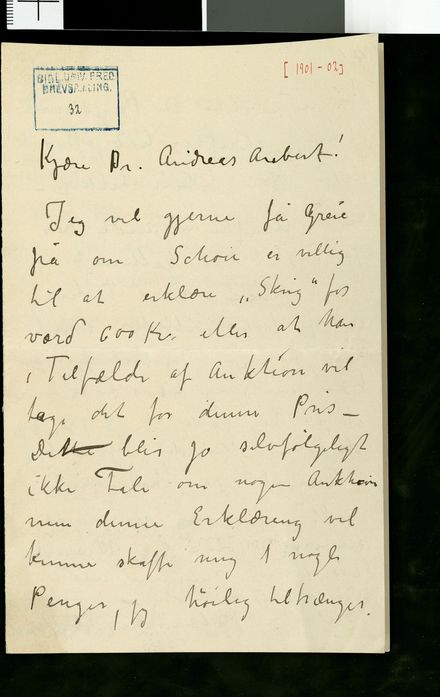 [1901-02]
BIBL. UNIV. FRED.
BREVSAMLING.
32
Kjære Dr. Andreas Aubert!
Jeg vil gjerne få Greie
på om Schou er villig
til at erklære „Skrig" for
værd 600 Kr. eller at han
i Tilfælde af Auktion vil
tage det for denne Pris –
Dette blir jo selvfølgeligt
ikke Tale om nogen Auktion
men denne Erklæring vil
kunne skaffe mig nogle
Penger, jeg høilig tiltrænger.